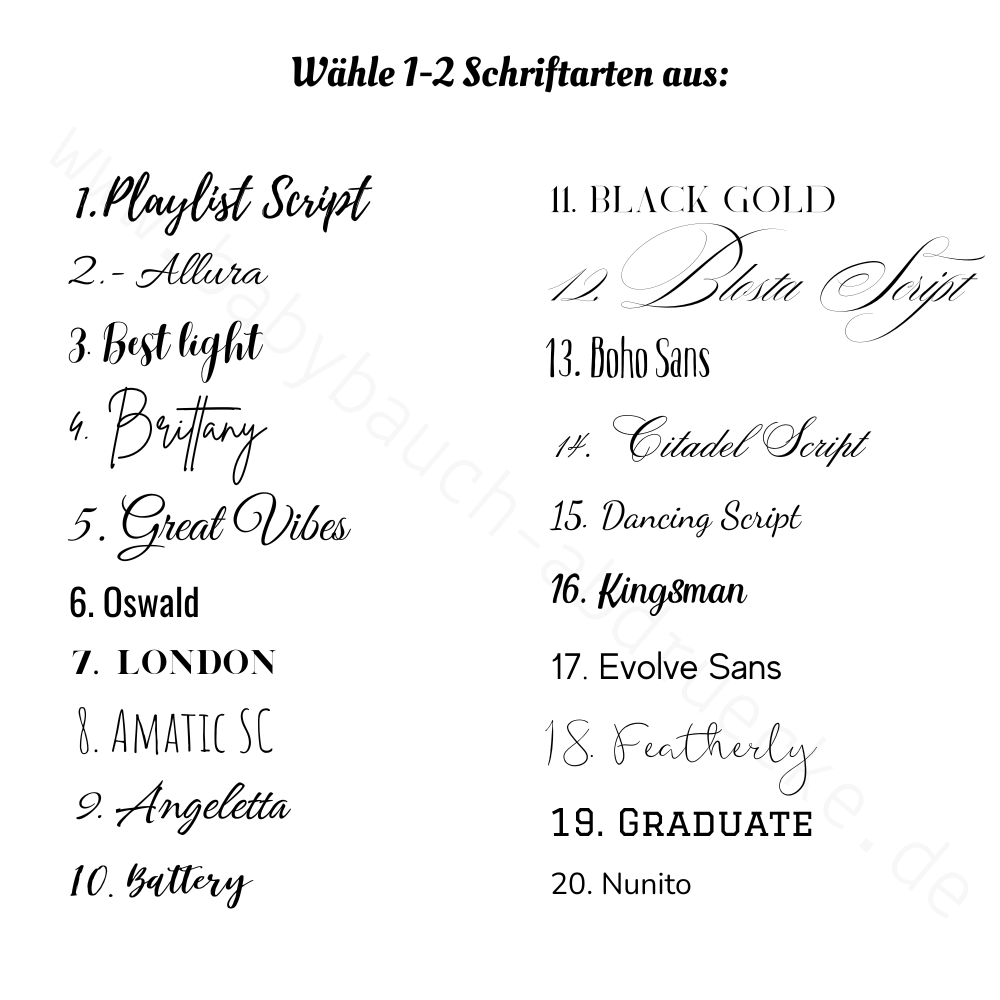 Wähle 1-2 Schriftarten aus:
1. Playlist Script
2.- Allura
3. Best light
4. Brittany
5. Great Vibes
6. Oswald
7. LONDON
8. AMATIC SC
9. Angeletta
10. Battery
11. BLACK GOLD
12. Blosta Script
13. Boho Sans
14. Citadel Script
15. Dancing Script
16. Kingsman
17. Evolve Sans
18. Featherly
19. GRADUATE
20. Nunito
www.babybauch-abdruecke.de